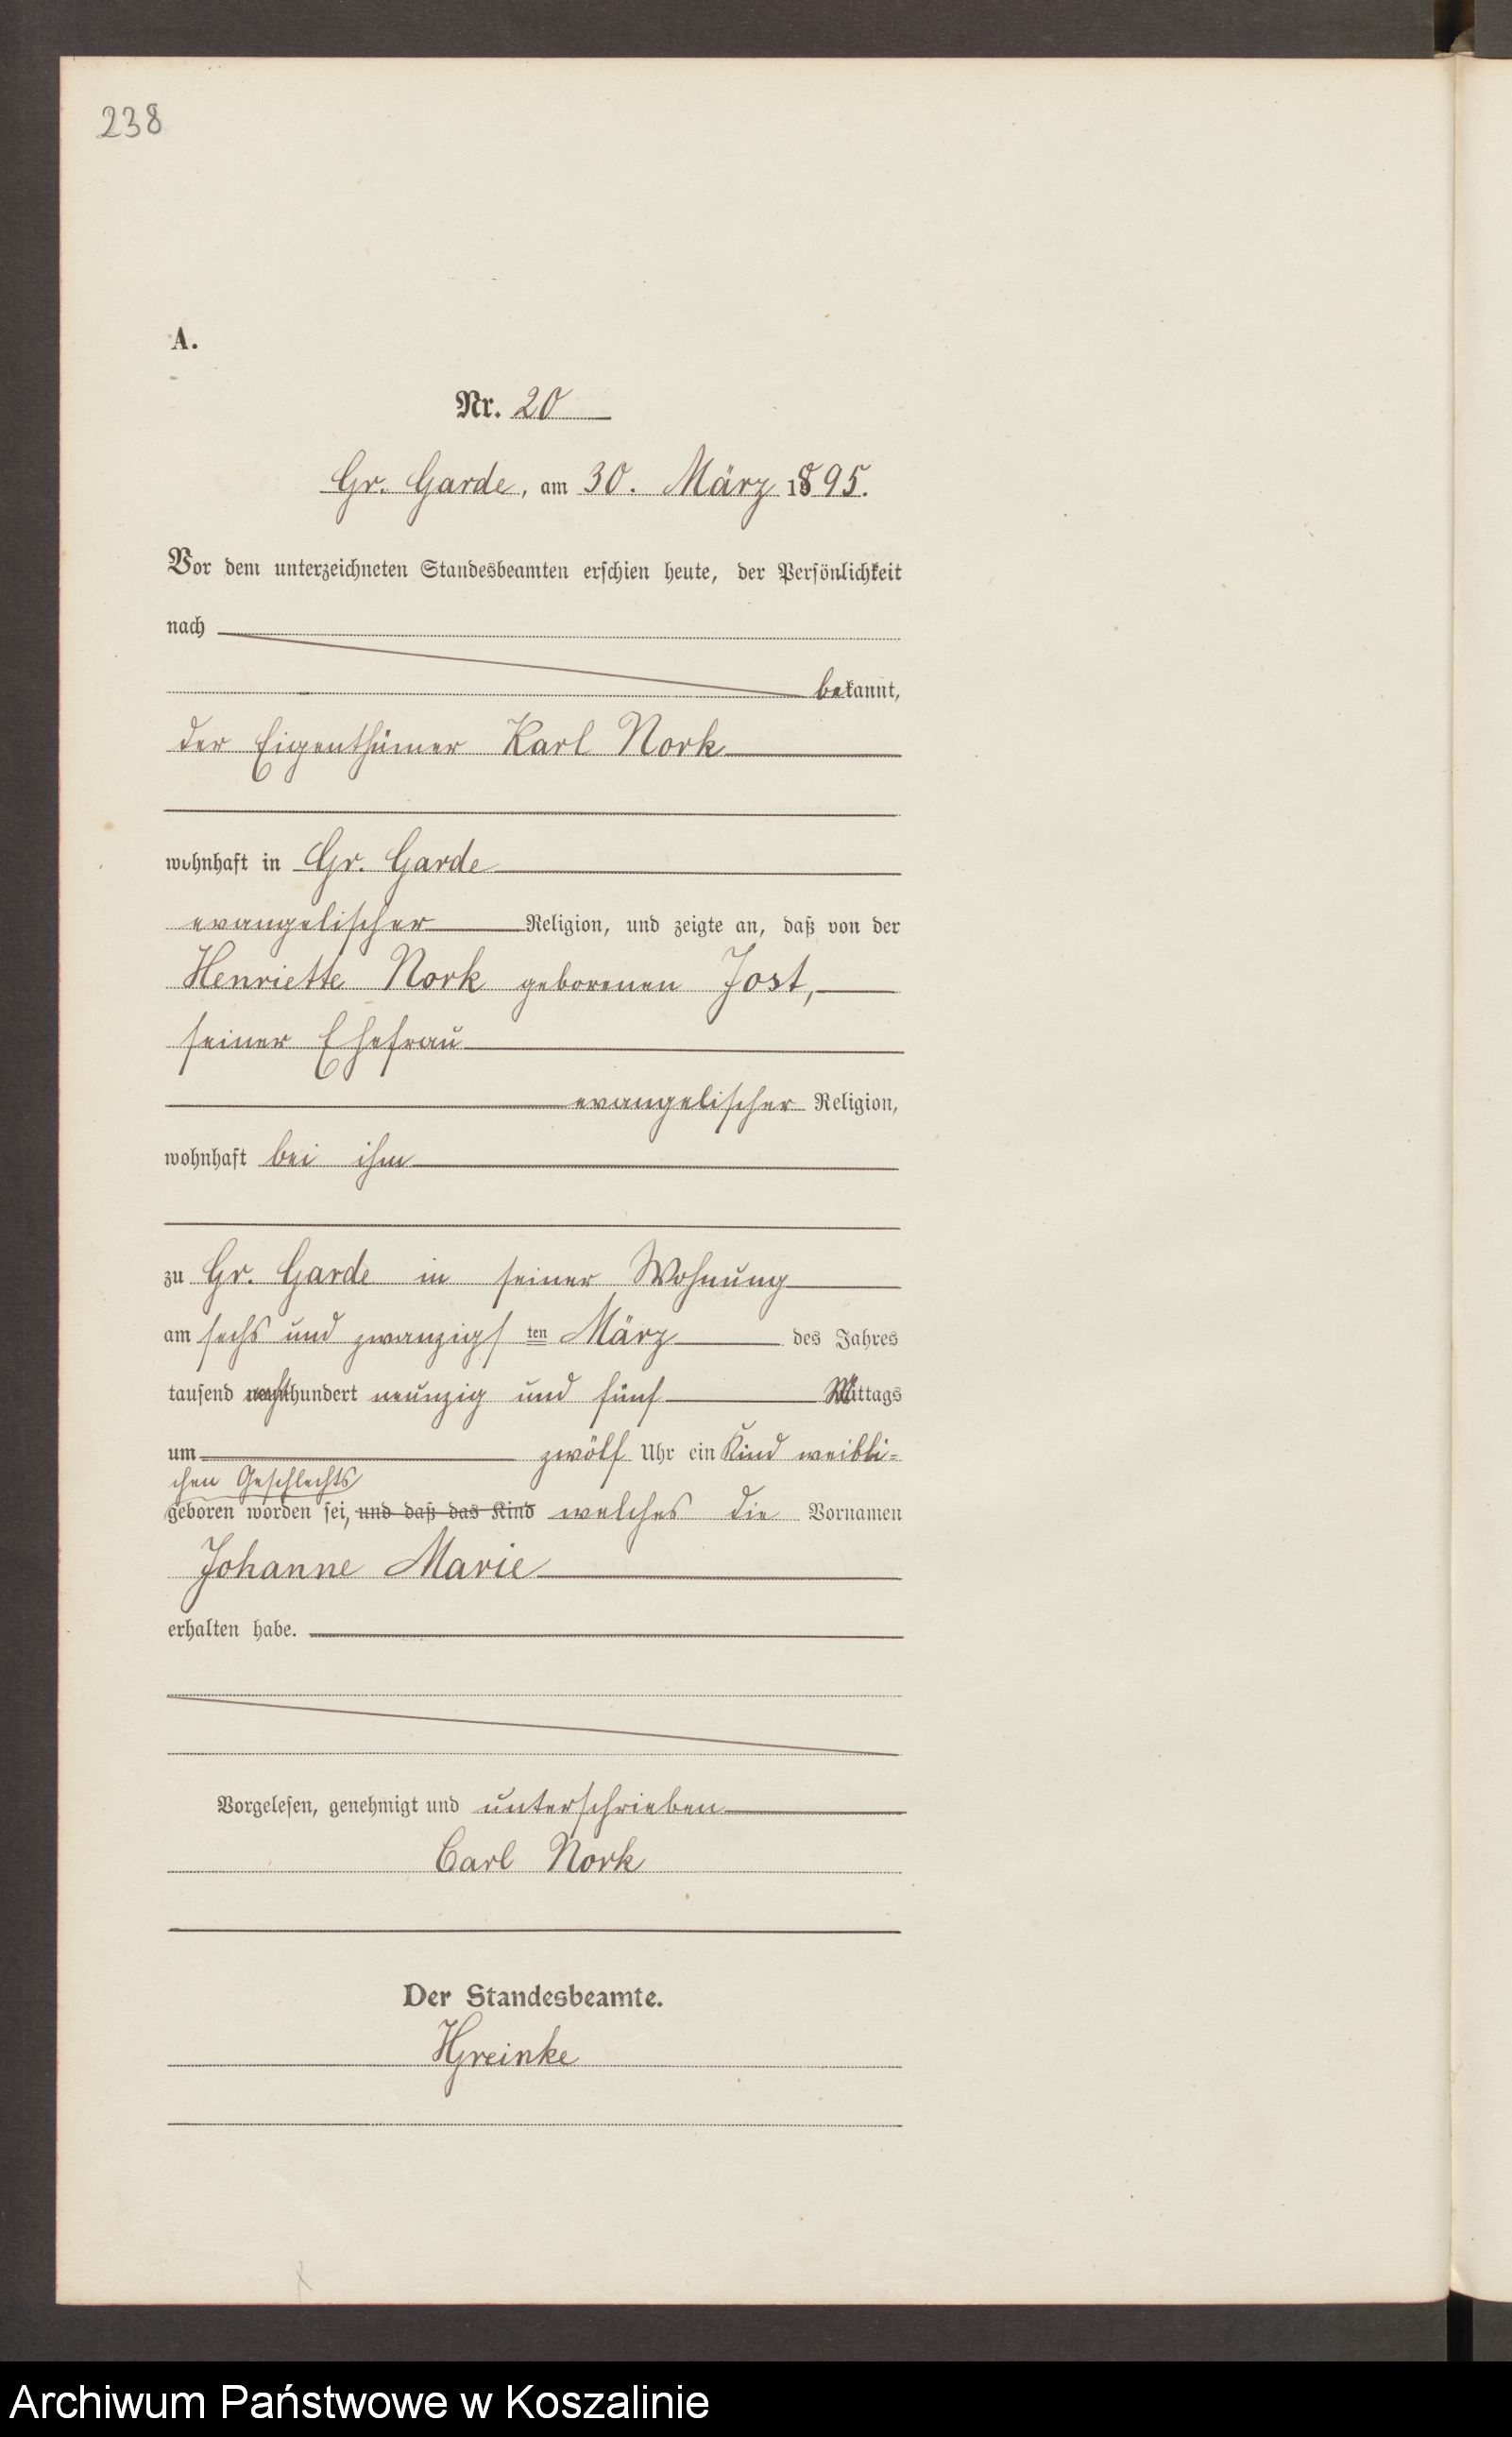 238
A.
Nr. 20
Gr. Garde, am 30. März 1895.
Vor dem unterzeichneten Standesbeamten erschien heute, der Persönlichkeit
nach
bekannt,
der Eigenthümer Karl Nork
wohnhaft in Gr. Garde
evangelischer Religion, und zeigte an, daß von der
Henriette Nork geborenen Jost,
seiner Ehefrau
evangelischer Religion,
wohnhaft bei ihm
zu Gr. Garde in seiner Wohnung
am sechs und zwanzigsten März des Jahres
tausend achthundert neunzig und fünf Mittags
um zwölf Uhr ein Kind weibli=
chen Geschlechts
geboren worden sei, und daß das Kind welches die Vornamen
Johanne Marie
erhalten habe.
Vorgelesen, genehmigt und unterschrieben
Carl Nork
Der Standesbeamte.
HGreinke
Archiwum Państwowe w Koszalinie